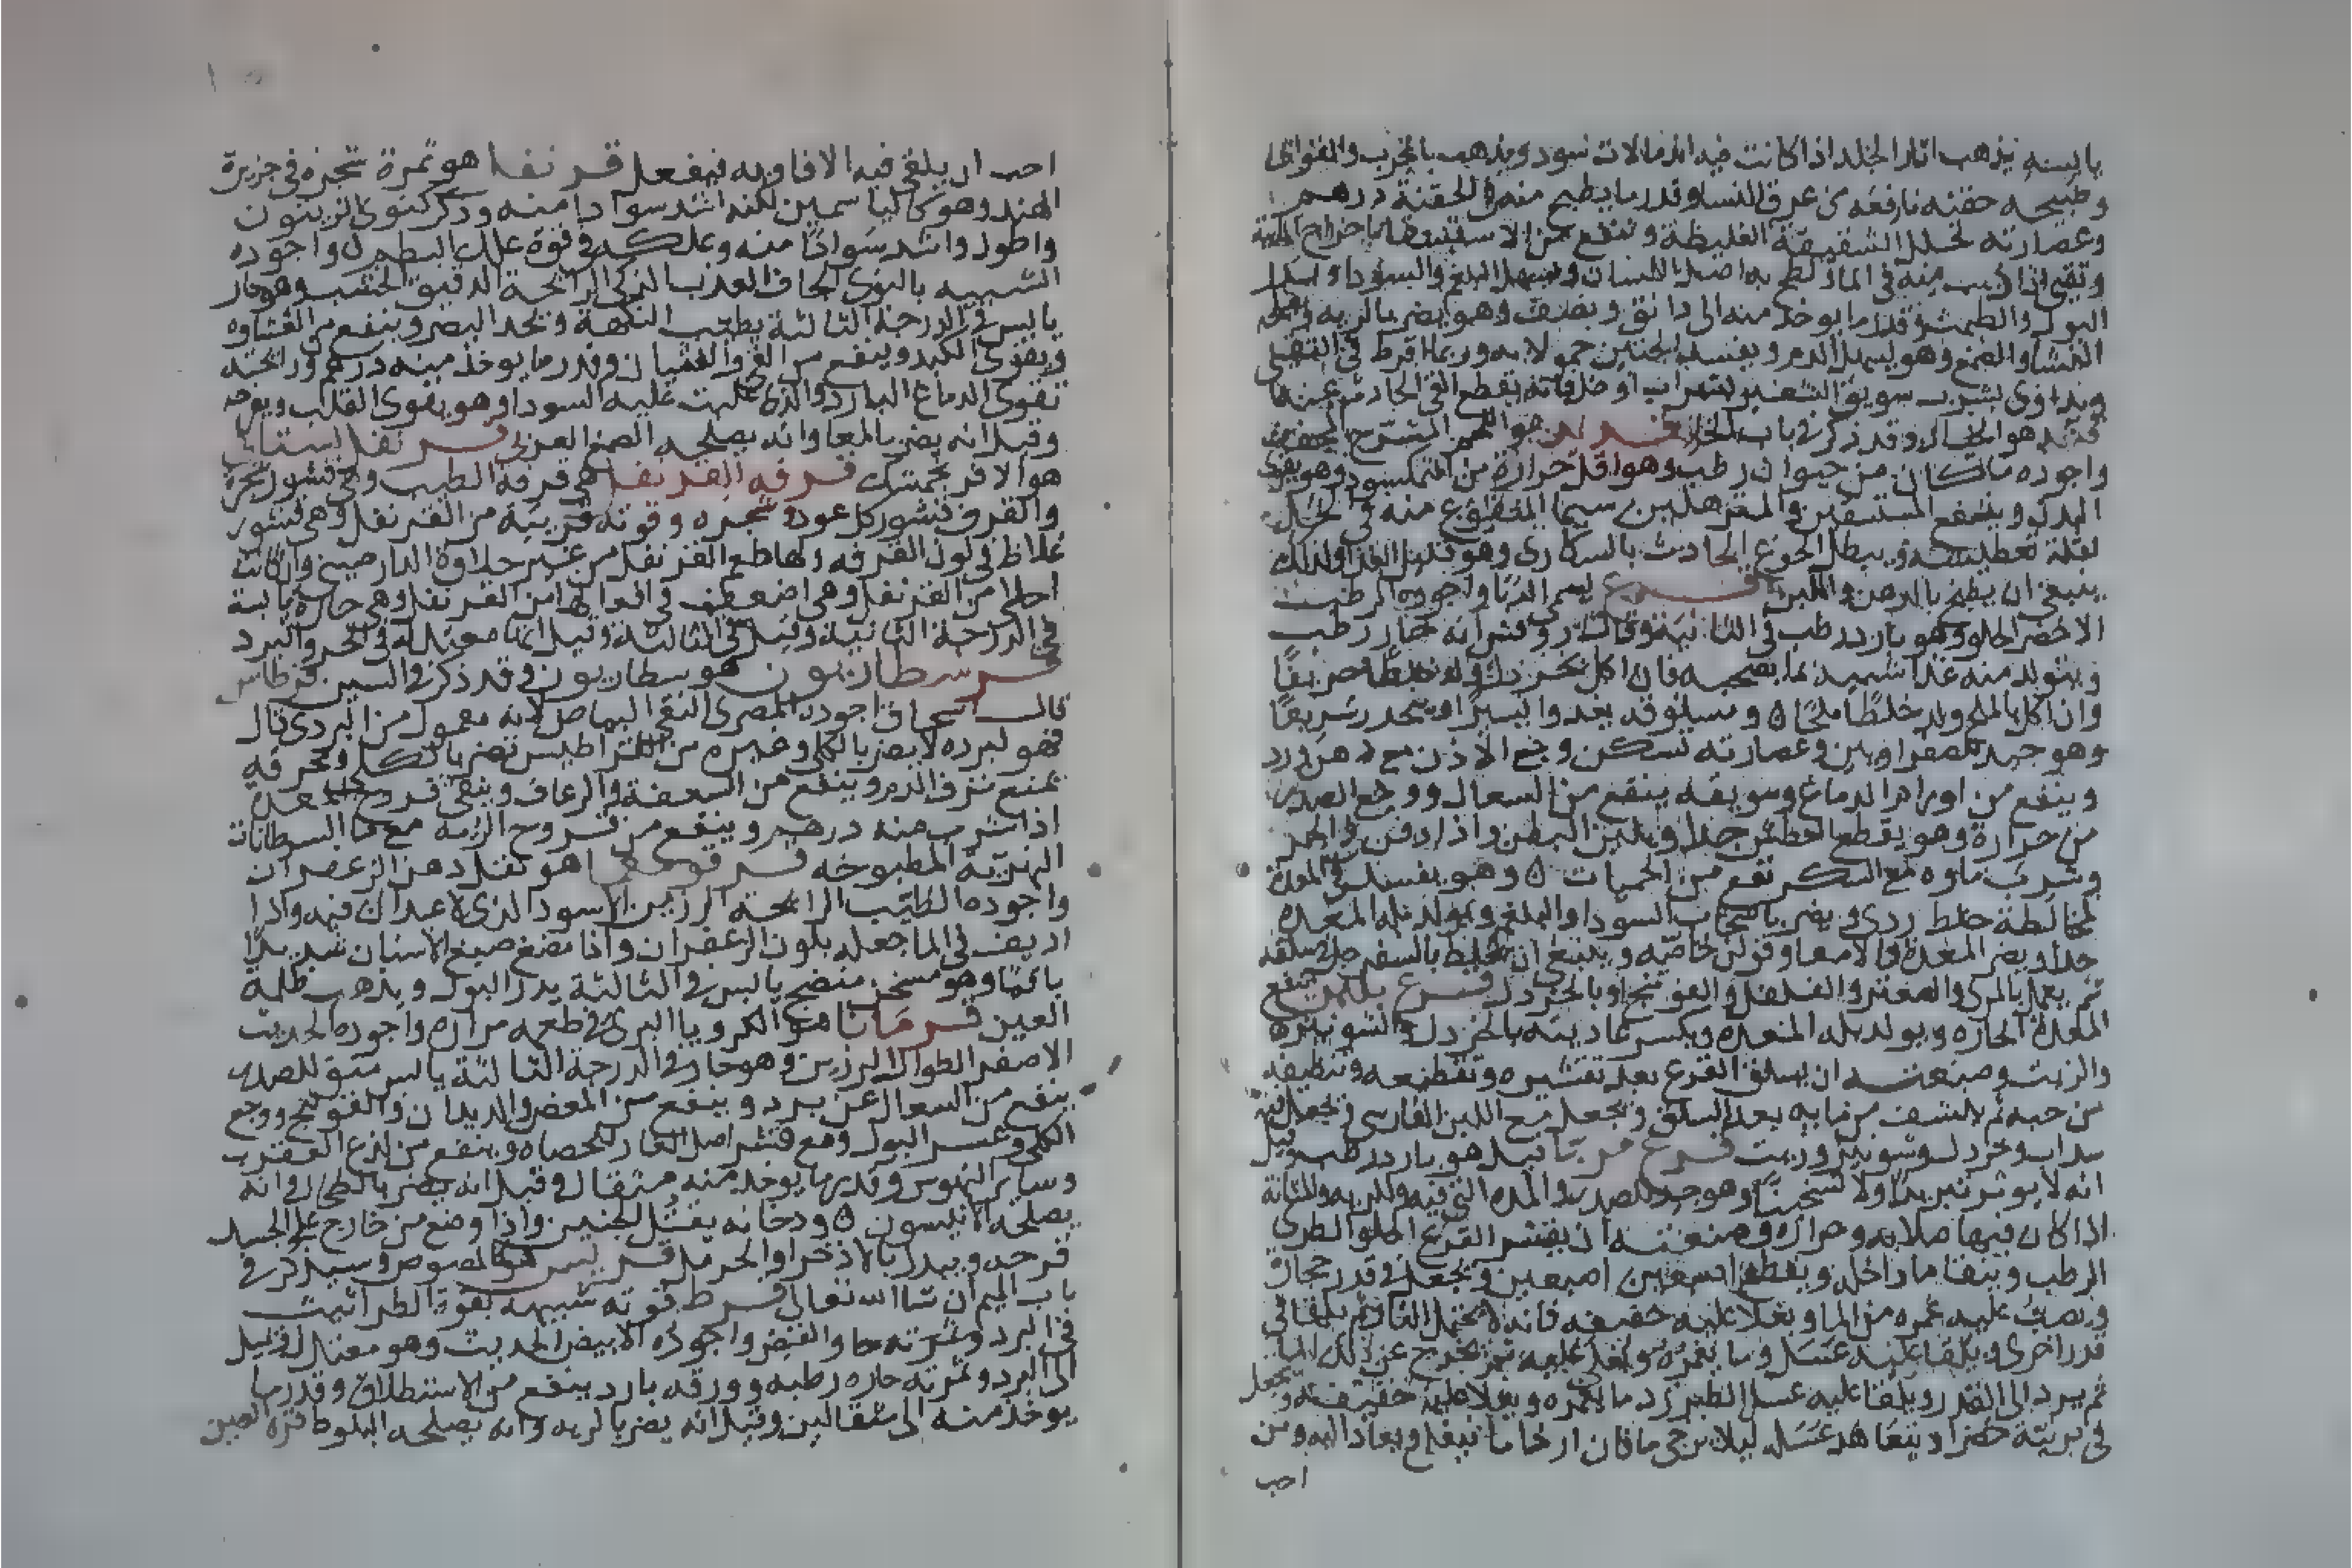 يابسه يذهب اثار الجلد اذا كانت فيه اندمالات سود ويذهب بالجرب والقوابي
وطبيخه حقنه نافعه من عرق النسا وقدر ما يطبخ منه في الحقنة درهم
وعصارته تحلل الشقيقة الغليظة وتنفع من الاستسقا
وتقي اذا في الما لطخ به اصل اللسان ويسهل البلغم والسودا
البول والطمث وقدر ما يوخذ منه الى دانق ونصف وهو يضر بالريه
النشا والصمغ وهو يسهل الدم ويفسد الجنين حمولا به وربما افرط في القي
ويداوى بشرب سويق الشعير بشراب او ضد فانه يقطع القي الحادث عنها
هو وقد ذكر في باب الخا قديد هو اللحم المشرح المجفف
واجوده ماكان من حيوان رطب وهو اقل حرارة من النمكسود وهو يقوي
البدن وينفع المستسقين والمترهلين سيما المنقوع منه في الخل
لقلة تعطيشه ويبطل الجوع الحادث بالسكارى وهو قليل الغذا ولذلك
ينبغي ان يطبخ بالدهن واللبن قرع يسمى الدبا واجوده الرطب
الاخضر الحلو وهو بارد رطب في الثانية وقال روفس انه حار رطب
ويتولد منه غذا شبيه بما يصحبه فان اكل بخردل ولد خلطا حريفا
وان اكل بالملح ولد خلطا ملحا ومسلوقه يغذوا يسيرا وينحدر سريعا
وهو جيد للصفراويين وعصارته تسكن وجع الاذن مع دهن ورد
وينفع من اورام الدماغ وسويقه ينفع من السعال ووجع الصدر
من حرارة وهو يقطع العطش جدا ويلين البطن واذا دفن في الجمر
وشرب ماوه مع السكر نفع من الحميات وهو يفسد في المعدة
لمخالطة خلط ردي ويضر باصحاب السودا والبلغم ويولد بلة المعده
جدا ويضر المعدة والامعا وقولن خاصية وينبغي ان يخلط بالسفرجل صلقه
ثم يعمل بالمري والصعتر والفلفل والفوتنج او بالخردل قرع بلبن ينفع
المعدة الحاره ويولد بلة المعده ويكسر عاديته بالخردل والشونيز
والزيت وصنعته ان يسلق القرع بعد تقشيره وتقطيعه وتنظيفه
من حبه ثم ينشف من مايه بعد السلق ويجعل مع اللبن الفارسي ويجعل فيه
سداب وخردل وشونيز وزيت قرع مربا قيل هو بارد رطب وقيل
انه لا يوثر تبريدا ولا تسخينا وهو جيد للصدر والمده التي فيه وللريه والمثانة
اذا كان فيها صلابه وحراره وصنعته ان يقشر القرع الحلو الطري
الرطب وينقا ما داخله ويقطع اصبعين اصبعين ويجعل في قدر حجار
ويصب عليه غمره من الما ويغلا غليه خفيفه فانه لا يحتمل النار ثم يلقا في
قدر اخرى ويلقا عليه عسل وما يغمره ويغلا غليه ثم يخرج عن ذلك الما
ثم يرد الى القدر ويلقا عليه عسل الطبرزد ما يغمره ويغلا غليه خفيفه ويجعل
في برنية خضرا ويتعاهد عسله ليلا يرخي ما فان ارخا ما نيغلي ويعاد اليه ومن
احب
احب ان يلقي فيه الافاويه فليفعل قرنفل هو ثمرة شجره في جزيرة
الهند وهو كالياسمين لكنه اشد سوادا منه وذكره كنوى الزيتون
واطول واشد سوادا منه وعلكه في قوة علك البطم واجوده
الشبيه بالنوى الجاف العذب الذكي الرائحة الدقيق الخشب وهو حار
يابس في الدرجة الثالثة يطيب النكهة ويحد البصر وينفع من الغشاوه
ويقوى الكبد وينفع من القي والغثيان وقدر ما يوخذ منه درهم ورائحته
تقوى الدماغ البارد والذي غلبت عليه السودا وهو يقوى القلب ويفرحه
وقيل انه يضر بالمعا وانه يصلحه الصمغ العربي قرنفل بستاني
هو الافرنجمشك قرفه القرنفل هي قرفه الطيب وهي قشور شجره
والقرف قشور كل عود شجره وقوته قريبه من القرنفل وهي قشور
غلاظ في لون القرفه لها طعم القرنفل من غير حلاوة الدارصيني وان كانت
احلى من القرنفل وهي اضعف في افعالها من القرنفل وهي حاره يابسة
في الدرجة الثانية وقيل في الثالثة وقيل انها معتدلة في الحر والبرد
قرسطاريون هو سطاريون وقد ذكر في السين قرطاس
قال اسحاق اجوده المصري النقي البياض لانه معمول من البردي قال
فهو لبرده لا يضر بالكلى وغيره من القراطيس تضر بالكلى ومحرقه
تمنع نزف الدم وينفع من السعفة والرعاف وينقي قروح المعدة
اذا شرب منه درهم وينفع من قروح الريه مع ما السرطانات
النهرية المطبوخه قرقومعما هو ثفل دهن الزعفران
واجوده الطيب الرائحة الرزين الاسود الذي لا عيدان فيه واذا
اديف في الما جعله بلون الزعفران واذا مضغ صبغ الاسنان شديدا
باقيا وهو مسخن منضج يابس في الثالثة يدر البول ويذهب ظلمة
العين قردمانا هو الكرويا البري في طعمه مرارة واجوده الحديث
الاصفر الطوال الرزين وهو حار في الدرجة الثالثة يابس منق للصدر
ينفع من السعال عن برد وينفع من المغص والديدان والقولنج ووجع
الكلى وعسر البول ومع قشر اصل الغار للحصاه وينفع من لدغ العقرب
وساير النهوش وقدر ما يوخذ منه مثقال وقيل انه يضر بالطحال وانه
يصلحه الانيسون ودخانه يقتل الجنين واذا وضع من خارج على الجسد
قرحه وبدله الاذخر او الحرمل قريس هو المصوص وسيذكر في
باب الميم ان شا الله تعالى قرط قوته شبيهه بقوة الطراثيث
في البرد وثمرته والقبض واجوده الابيض الحديث وهو معتدل وقيل
الى البرد وثمرته حاره رطبه وورقه بارد ينفع من الاستطلاق وقدر ما
يوخذ منه الى مثقالين وقيل انه يضر بالريه وانه يصلحه البلوط قرة العين